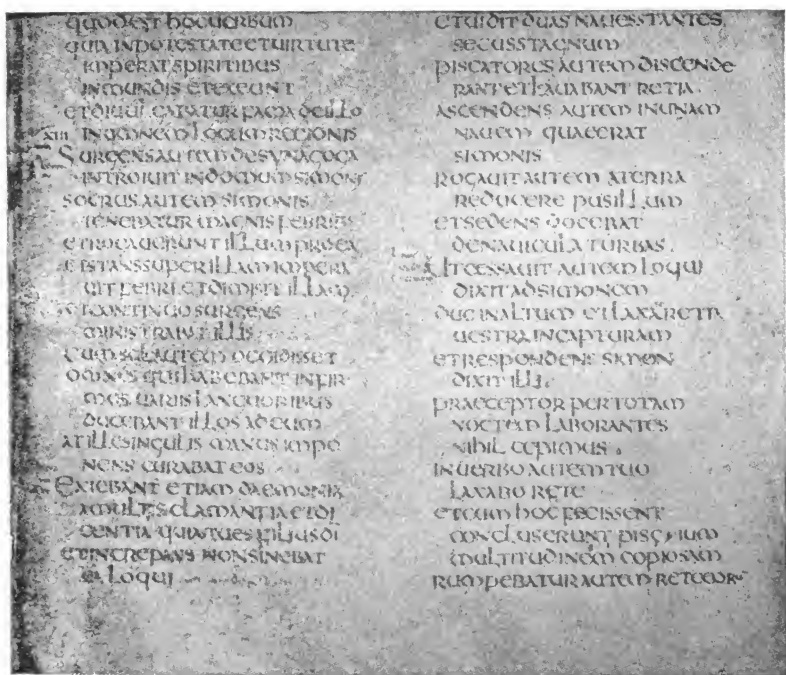 quodest hocuerbum
quia inpotestate etuirtute
imperat spiritibus
inmundis etexeunt
etdiuulgabatur fama deillo
xiii inomnem locum regionis
Surgens autem desynagoga
introiuit indomum simonis
socrus autem simonis
tenebatur magnis febribus
etrogauerunt illum proea
etstans super illam impera
uit febri etdimisit illam
etcontinuo surgens
ministrabat illis
cum sol autem occidisset
omnes quihabebant infir
mos uariis languoribus
ducebant illos adeum
atille singulis manus impo
nens curabat eos
Exiebant etiam daemonia
amultis clamantia etdi
centia quia tues filius di
etincrepans nonsinebat
ea loqui
etuidit duas naues stantes
secus stagnum
piscatores autem discende
rant etlauabant retia
ascendens autem inunam
nauem quaeerat
simonis
rogauit autem aterra
reducere pusillum
etsedens docebat
denauicula turbas.
Utcessauit autem loqui
dixit adsimonem
duc inaltum etlaxate retia
uestra incapturam
etrespondens simon
dixit illi.
praeceptor pertotam
noctem laborantes
nihil cepimus.
inuerbo autem tuo
laxabo rete
etcum hoc fecissent
concluserunt piscium
multitudinem copiosam
rumpebatur autem rete eorum